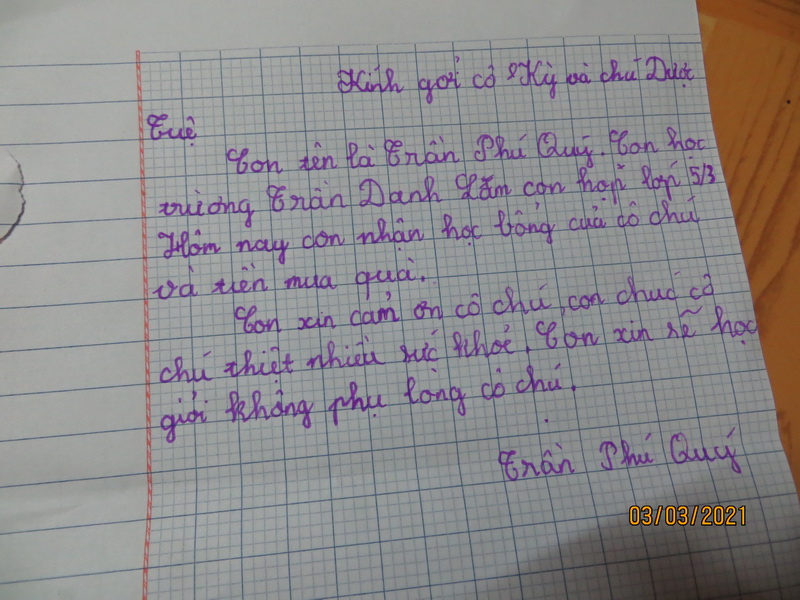 Kính gởi cô Kỳ và chú Dược
Tuệ
Con tên là Trần Phú Quý. Con học
trường Trần Danh Lâm con họp lớp 5/3
Hôm nay con nhận học bổng cuả cô chú
và tiền mua quà.
Con xin cảm ơn cô chú, con chuć cô
chú thiệt nhiều sức khoẻ. Con xin sẽ học
giỏi không phụ lòng cô chú.
Trần Phú Quý
03/03/2021